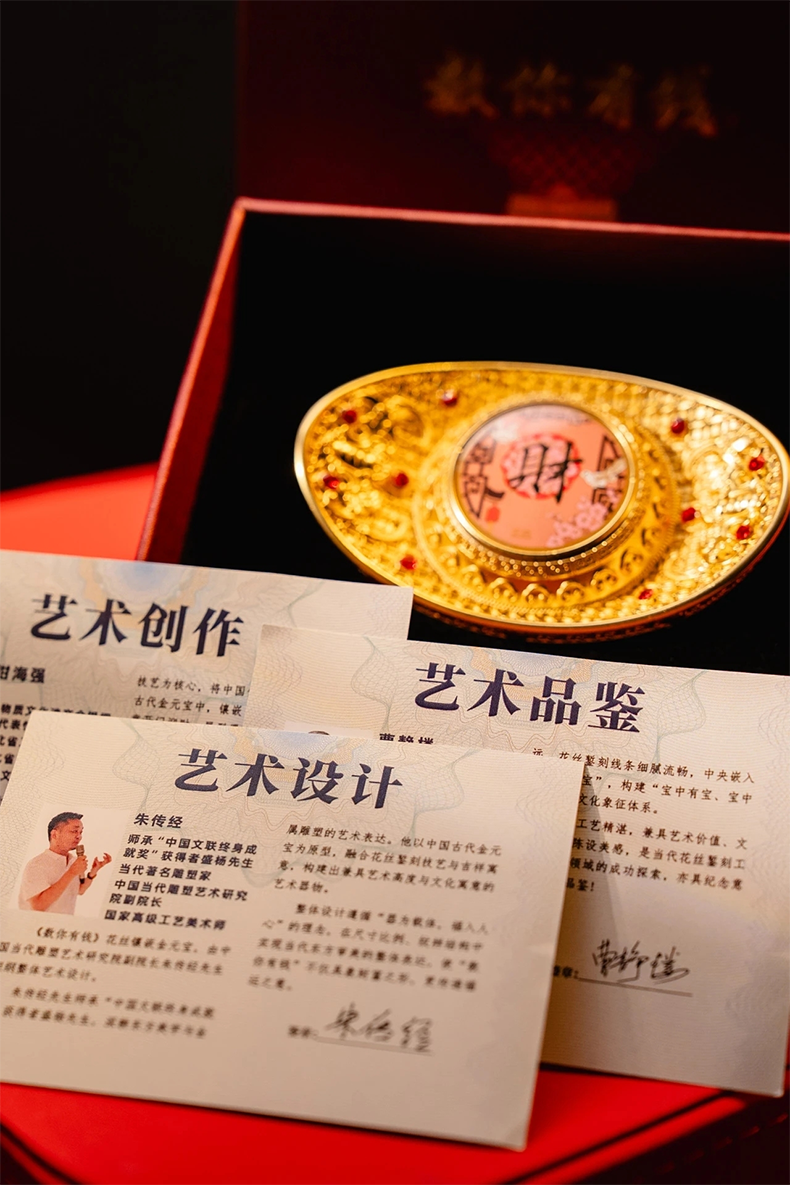 数你有钱
財
艺术创作
甘海强
技艺为核心，将中国
古代金元宝中，镶嵌
艺术品鉴
曹静楷
远，花丝錾刻线条细腻流畅，中央嵌入
宝”，构建“宝中有宝、宝中
文化象征体系。
工艺精湛，兼具艺术价值、文
陈设美感，是当代花丝錾刻工
领域的成功探索，亦具纪念意
品鉴！
艺术设计
朱传经
师承“中国文联终身成
就奖”获得者盛杨先生
当代著名雕塑家
中国当代雕塑艺术研究
院副院长
国家高级工艺美术师
《数你有钱》花丝镶嵌金元宝，由中
国当代雕塑艺术研究院副院长朱传经先生
整体艺术设计。
朱传经先生师承“中国文联终身成就
获得者盛杨先生，
属雕塑的艺术表达。他以中国古代金元
宝为原型，融合花丝錾刻技艺与吉祥寓
意，构建出兼具艺术高度与文化寓意的
艺术器物。
整体设计遵循“器为载体，福入人
心”的理念，在尺寸比例、纹样结构中
实现当代东方审美的整体表达，使“数
你有钱”不仅具象财富之形，更传递福
运之意。
朱传经
曹静楷